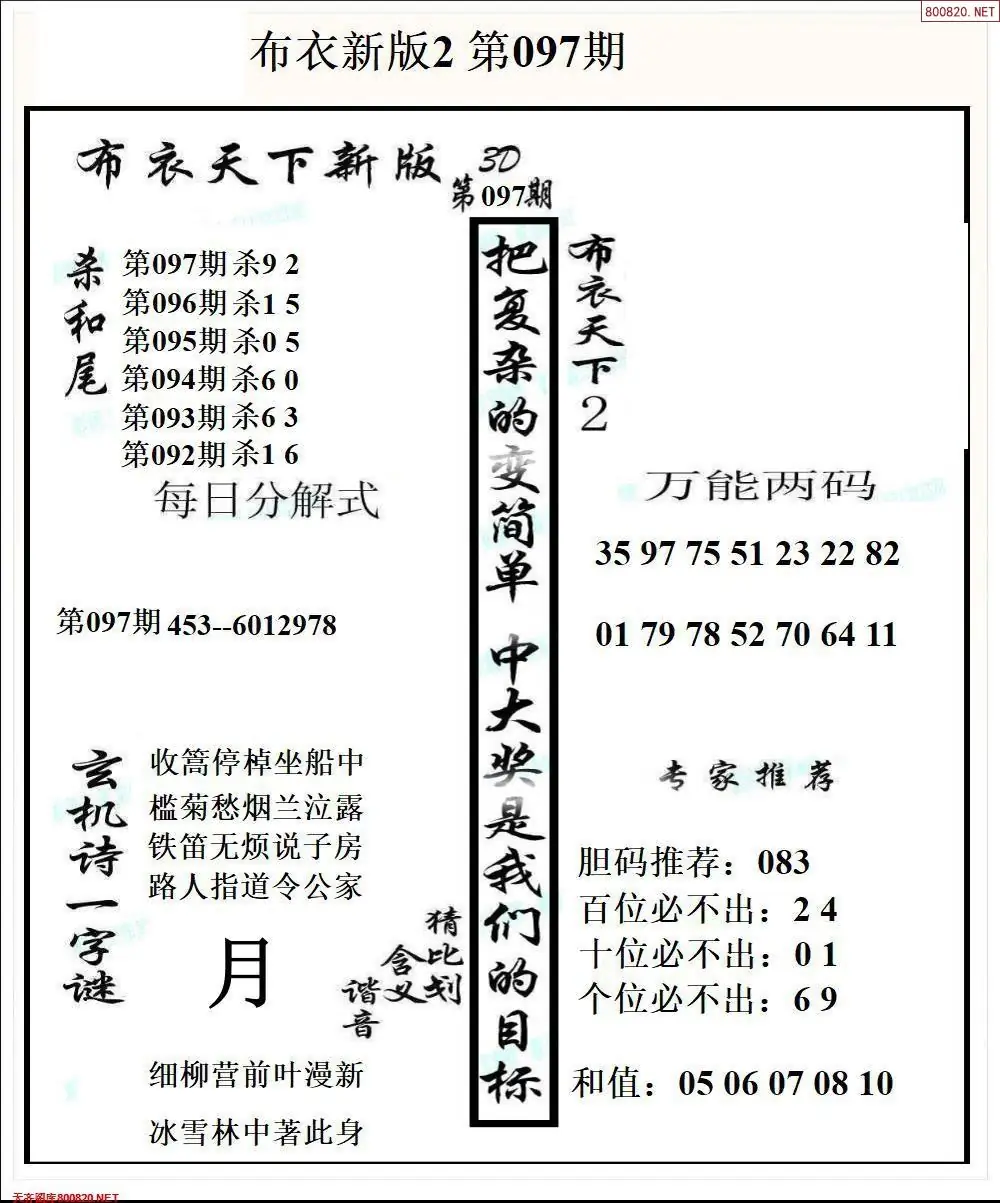 800820.NET
布衣新版2 第097期
布衣天下新版
3D
第097期
杀和尾
第097期 杀9 2
第096期 杀1 5
第095期 杀0 5
第094期 杀6 0
第093期 杀6 3
第092期 杀1 6
每日分解式
第097期 453--6012978
玄机诗一字谜
收篙停棹坐船中
槛菊愁烟兰泣露
铁笛无烦说子房
路人指道令公家
月
猜比划
含义
谐音
细柳营前叶漫新
冰雪林中著此身
把复杂的变简单 中大奖是我们的目标
布衣天下2
万能两码
35 97 75 51 23 22 82
01 79 78 52 70 64 11
专家推荐
胆码推荐：083
百位必不出：2 4
十位必不出：0 1
个位必不出：6 9
和值：05 06 07 08 10
天齐图库800820.NET